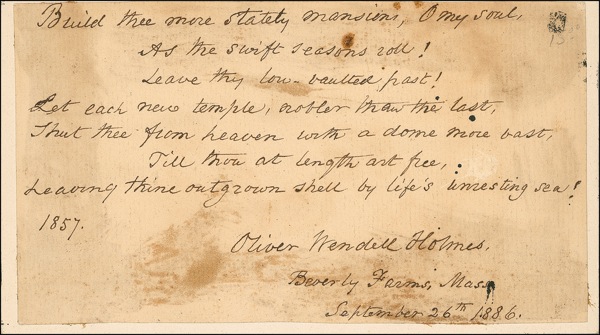 Build thee more stately mansions, O my soul,
As the swift seasons roll!
Leave thy low-vaulted past!
Let each new temple, nobler than the last,
Shut thee from heaven with a dome more vast,
Till thou at length art free,
Leaving thine outgrown shell by life's unresting sea!
1857.
Oliver Wendell Holmes.
Beverly Farms, Mass
September 26th 1886.